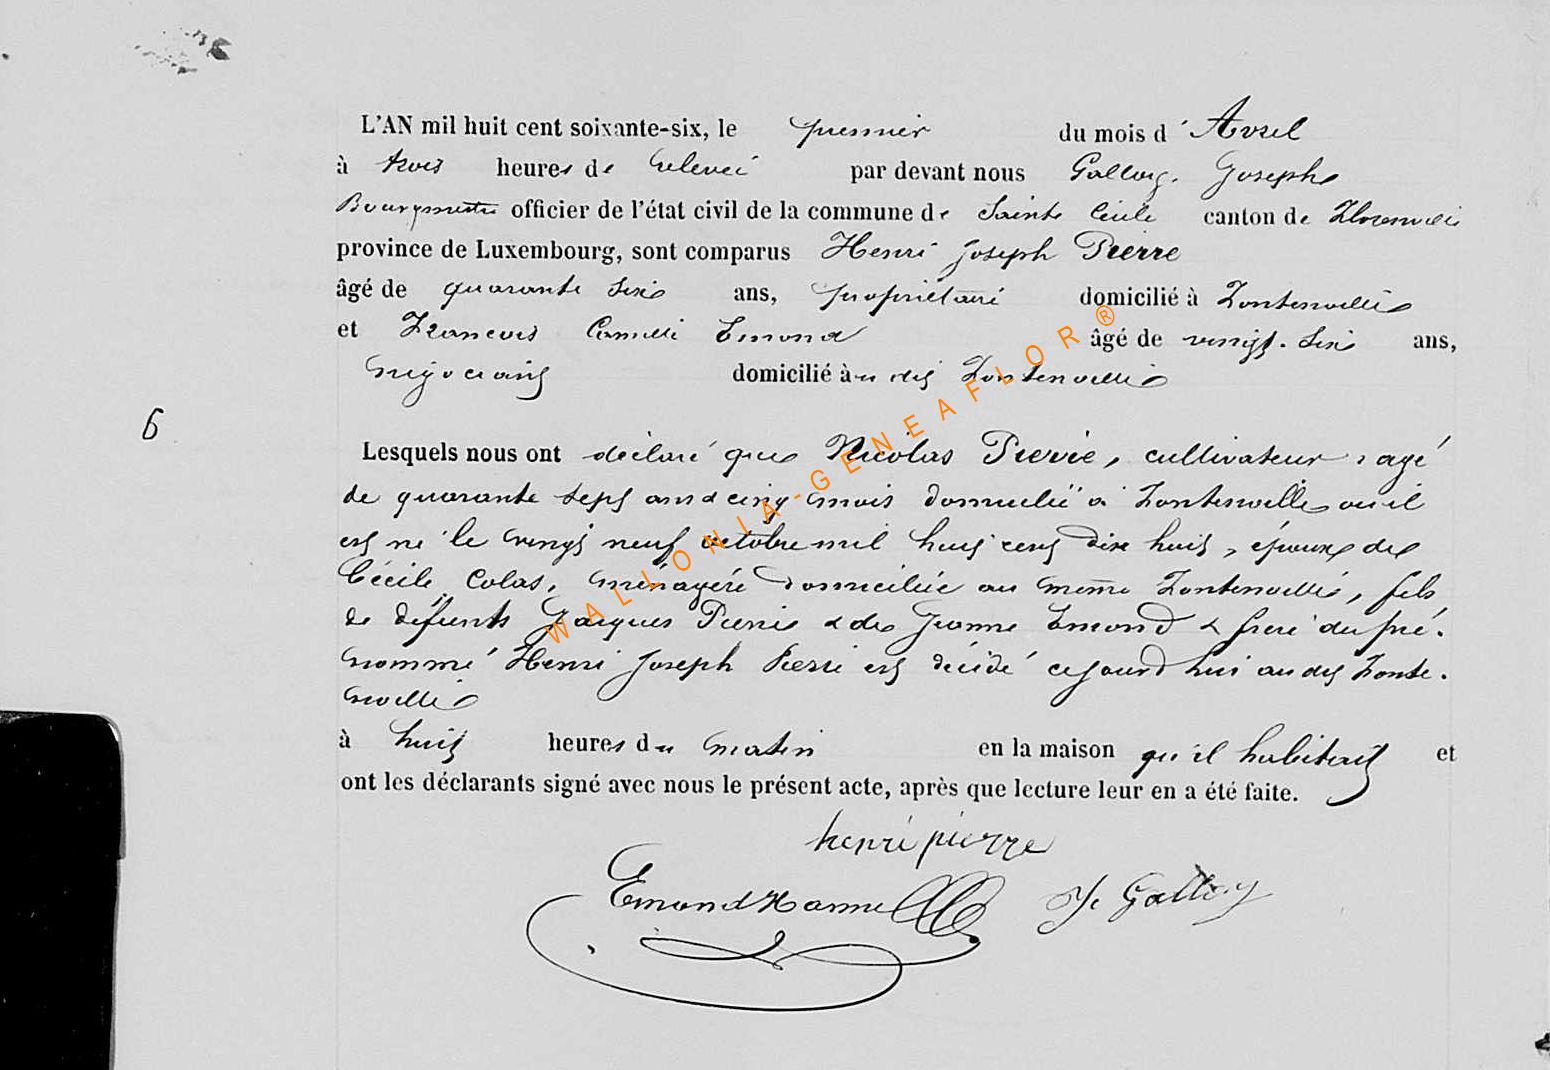 L'AN mil huit cent soixante-six, le premier du mois d' Avril
à trois heures de relevée par devant nous Galloy Joseph
Bourgmestre officier de l'état civil de la commune de Sainte Cécile canton de Florenville
province de Luxembourg, sont comparus Henri Joseph Pierre
âgé de quarante six ans, propriétaire domicilié à Fontenoille
et François Camille Emond âgé de vingt-six ans,
négociant domicilié au dit Fontenoille
6
Lesquels nous ont déclaré que Nicolas Pierre, cultivateur, agé
de quarante sept ans & cinq mois domicilié à Fontenoille où il
est né le vingt neuf octobre mil huit cent dix huit, époux de
Cécile Colas, ménagère domiciliée au même Fontenoille, fils
de défunts Jacques Pierre & de Jeanne Emond & frère du pré-
nommé Henri Joseph Pierre est décédé cejourd'hui au dit Fonte-
noille
à huit heures du matin en la maison qu'il habitait et
ont les déclarants signé avec nous le présent acte, après que lecture leur en a été faite.
henri pierre
Emond J. Galloy
WALLONIA-GENEAFLOR®